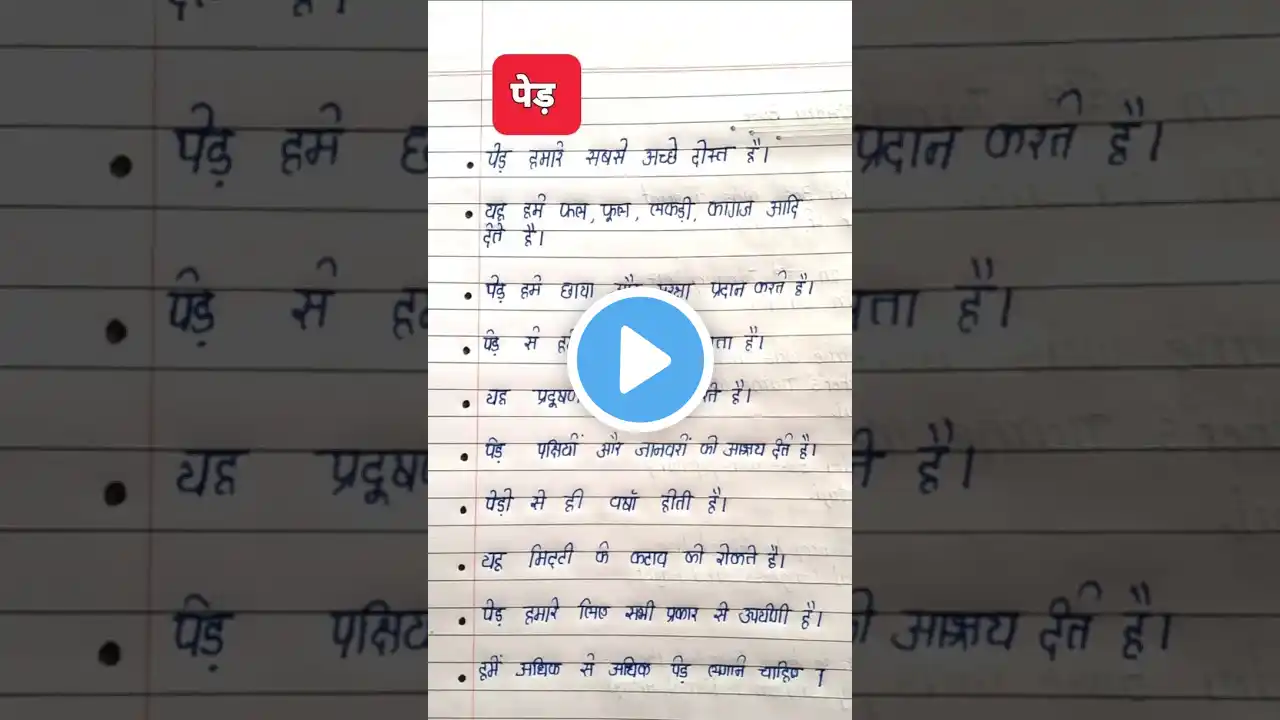 पेड़
• पेड़ हमारे सबसे अच्छे दोस्त है।
• यह हमे फल, फूल, लकड़ी, कागज आदि
देते है।
• पेड़ हमे छाया प्रदान करते है।
• पेड़ से है।
• यह है।
• पेड़ पक्षियों और जानवरों को आश्रय देते है।
• पेड़ो से ही वर्षा होती है।
• यह मिट्टी के कटाव को रोकते है।
• पेड़ हमारे लिए सभी प्रकार से उपयोगी है।
• हमें अधिक से अधिक पेड़ लगाने चाहिए ।